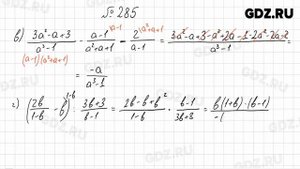 № 285
GDZ.RU
в) (3a² - a + 3)/(a³ - 1) - (a - 1)/(a² + a + 1) - 2/(a - 1) = (3a² - a + 3 - a² + 2a - 1 - 2a² - 2a - 2)/(a³ - 1)
(a-1)(a²+a+1)
= -a/(a³ - 1)
г) (2b/(1-b) - b) : (3b+3)/(b-1) = (2b - b + b²)/(1-b) · (b-1)/(3b+3) = b(1+b)·(b-1)/-(
GDZ.RU